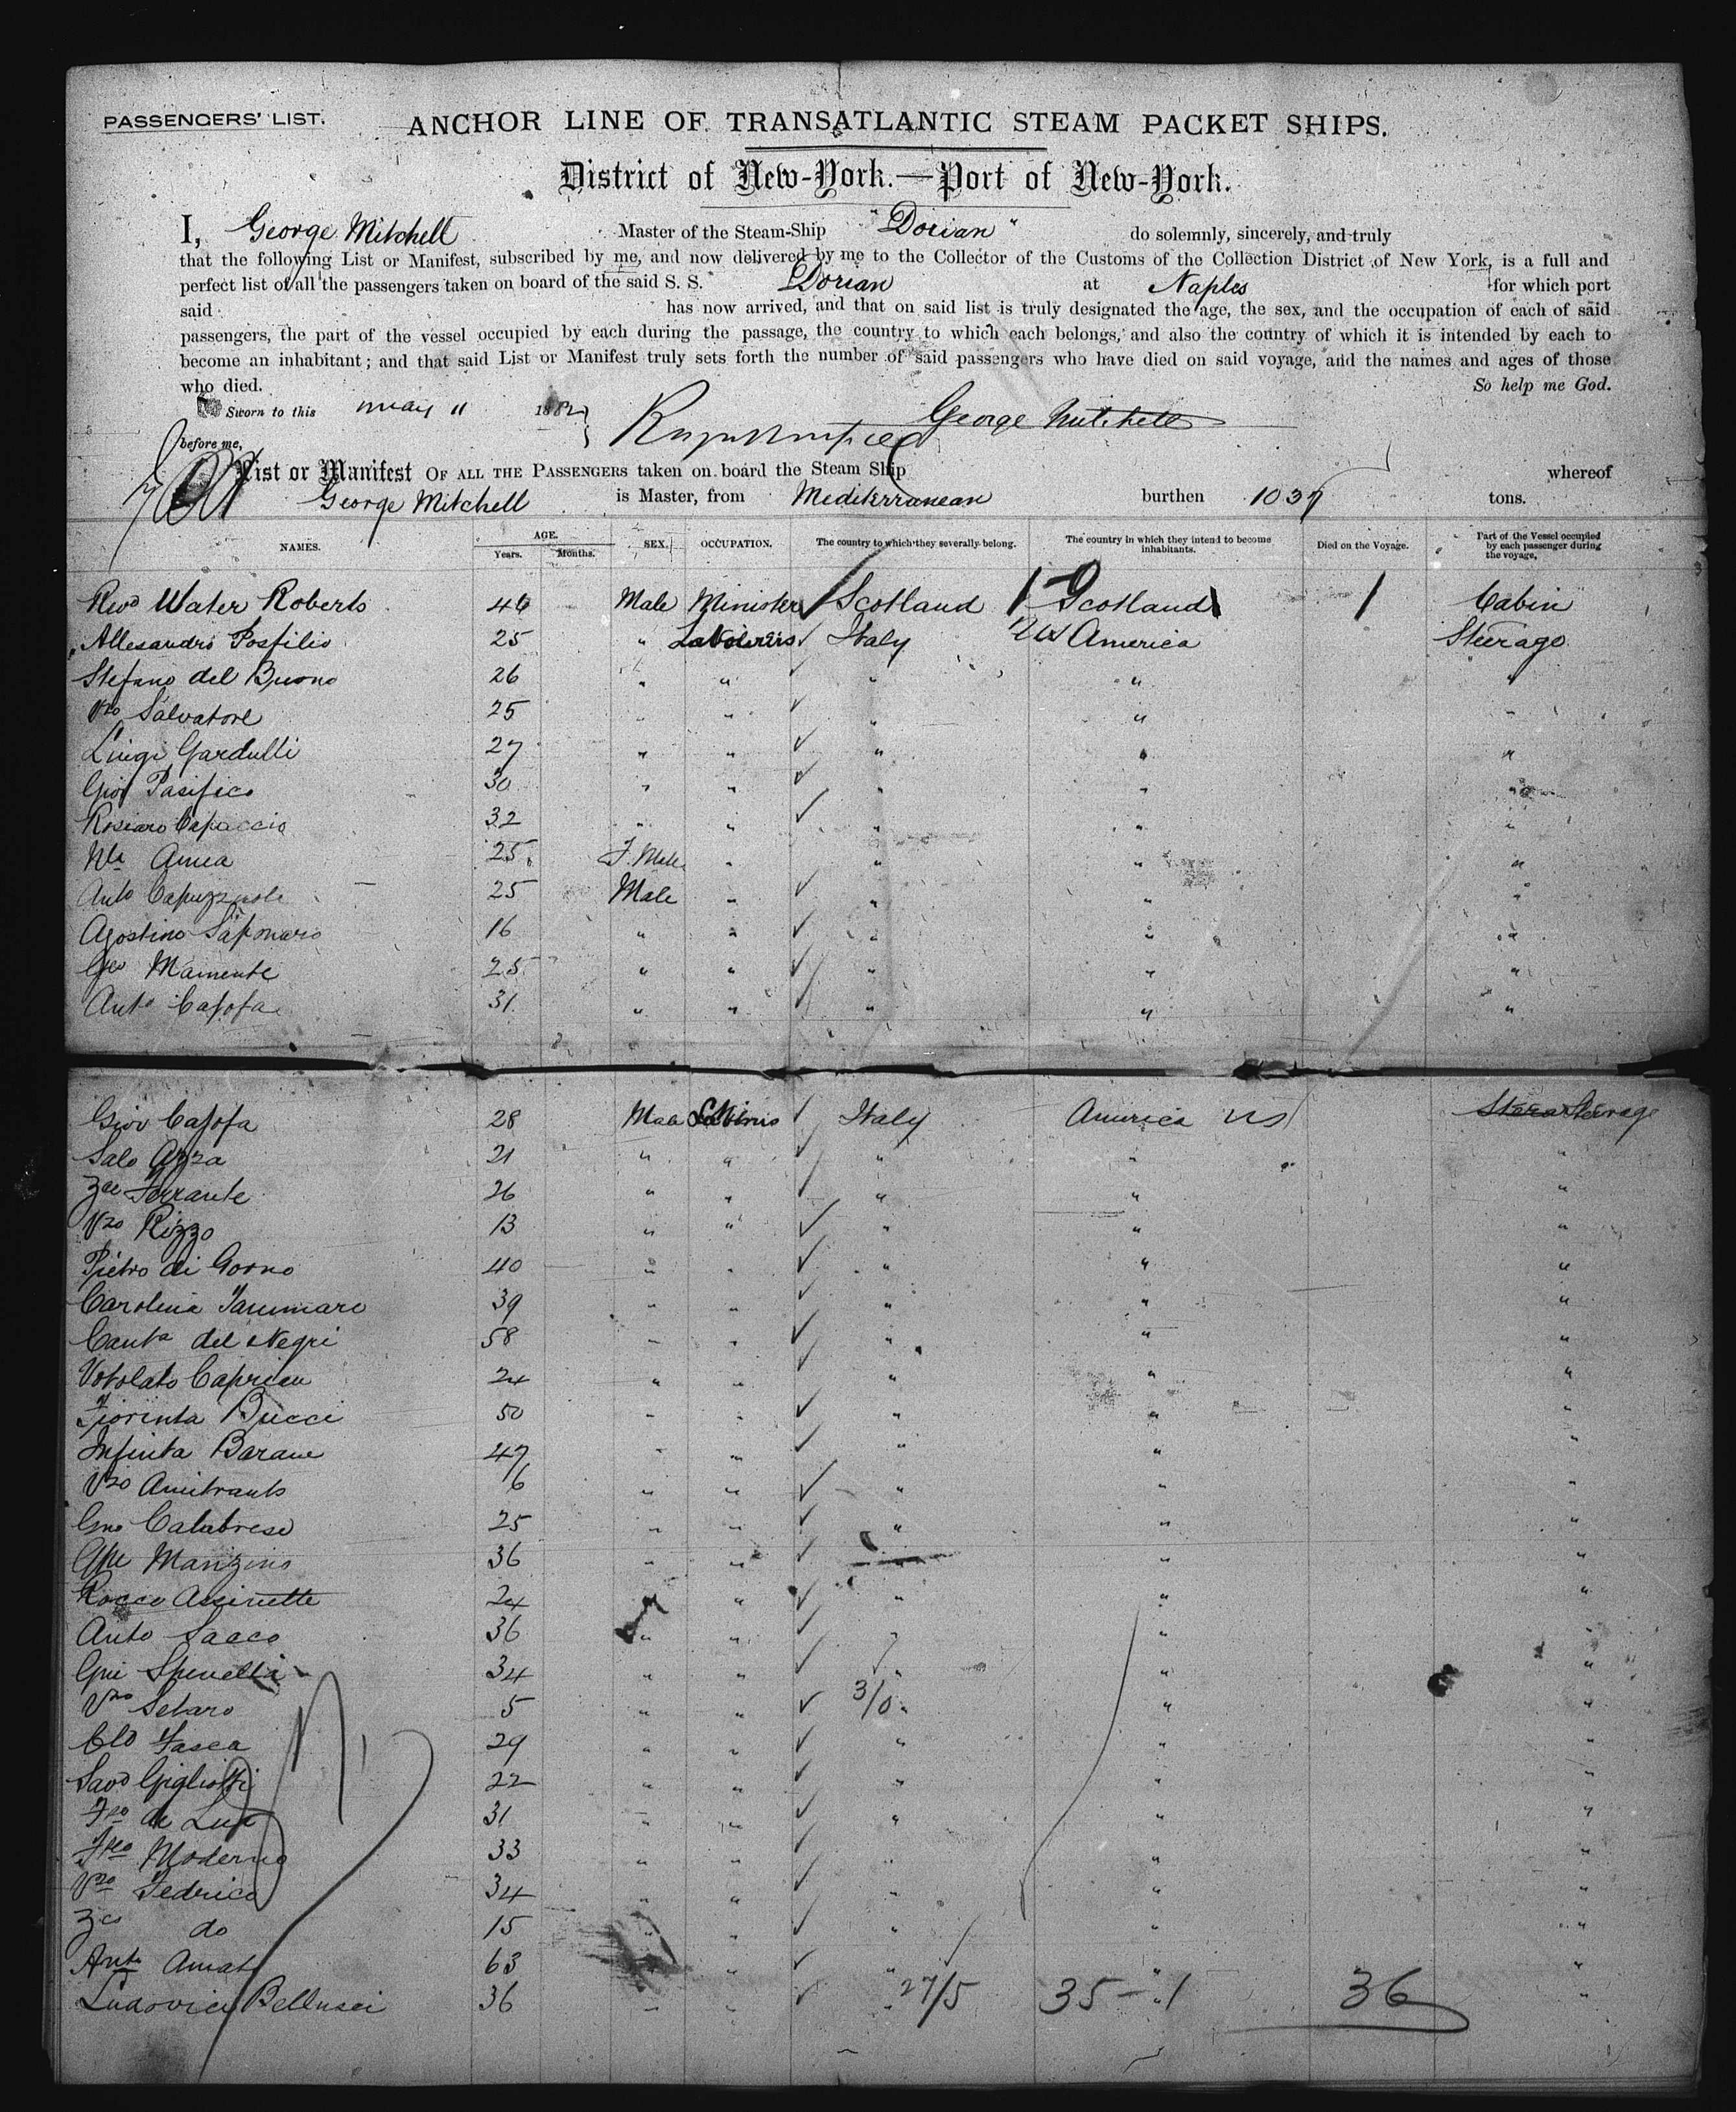 PASSENGERS' LIST.
ANCHOR LINE OF TRANSATLANTIC STEAM PACKET SHIPS.
District of New-York.—Port of New-York.
I, George Mitchell Master of the Steam-Ship "Dorian" do solemnly, sincerely, and truly
that the following List or Manifest, subscribed by me, and now delivered by me to the Collector of the Customs of the Collection District of New York, is a full and
perfect list of all the passengers taken on board of the said S. S. Dorian at Naples for which port
said has now arrived, and that on said list is truly designated the age, the sex, and the occupation of each of said
passengers, the part of the vessel occupied by each during the passage, the country to which each belongs, and also the country of which it is intended by each to
become an inhabitant; and that said List or Manifest truly sets forth the number of said passengers who have died on said voyage, and the names and ages of those
who died. So help me God.
Sworn to this May 11 1882
George Mitchell
before me,
List or Manifest OF ALL THE PASSENGERS taken on board the Steam Ship whereof
George Mitchell is Master, from Mediterranean burthen 1037 tons.
NAMES. AGE. Years. Months. SEX. OCCUPATION. The country to which they severally belong. The country in which they intend to become inhabitants. Died on the Voyage. Part of the Vessel occupied by each passenger during the voyage.
Revd Water Roberts 46 Male Minister Scotland Scotland 1 Cabin
Allesandro Posfilio 25 " Italy US America Steerage
Stefano del Buono 26 " " " " "
Vzo Salvatore 25 " " " " "
Luigi Gardulli 27 " " " " "
Giov Pasifico 30 " " " " "
Rosiaro Capaccio 32 " " " " "
Nla Amea 25 F. Male " " " "
Anto Capuzzuole 25 Male " " " "
Agostino Saponaro 16 " " " " "
Mamente 25 " " " " "
Anto Casofa 31 " " " " "
Giov Casofa 28 Male Italy America US Steerage
Salo Azza 21 " " " " "
Zae Ferrante 26 " " " " "
Vzo Rizzo 13 " " " " "
Pietro di Gorno 40 " " " " "
Carolina 39 " " " " "
Canta del Negri 58 " " " " "
Votolato Capricau 24 " " " " "
Fiorinta Bucci 50 " " " " "
Infinta Barane 47 " " " " "
Vzo Amitranto 6 " " " " "
Gno Calabrese 25 " " " " "
Gpe Manzino 36 " " " " "
Rocco Assinette 24 " " " " "
Anto Sacco 36 " " " " "
Gpe Spinelli 34 " " " " "
Vzo Setaro 5 " " 3/0 " " "
Cld Fasca 29 " " " " "
Savd Gigliotti 22 " " " " "
Fco de Luc 31 " " " " "
Fco Moderno 33 " " " " "
Vzo Fedrico 34 " " " " "
Zco do 15 " " " " "
Anto Amato 63 " " " " "
Ludovico Bellusci 36 " " " 27/5 35-1 36 "